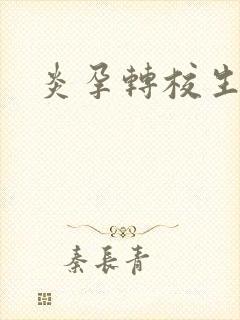 炎孕轉校生
秦長青